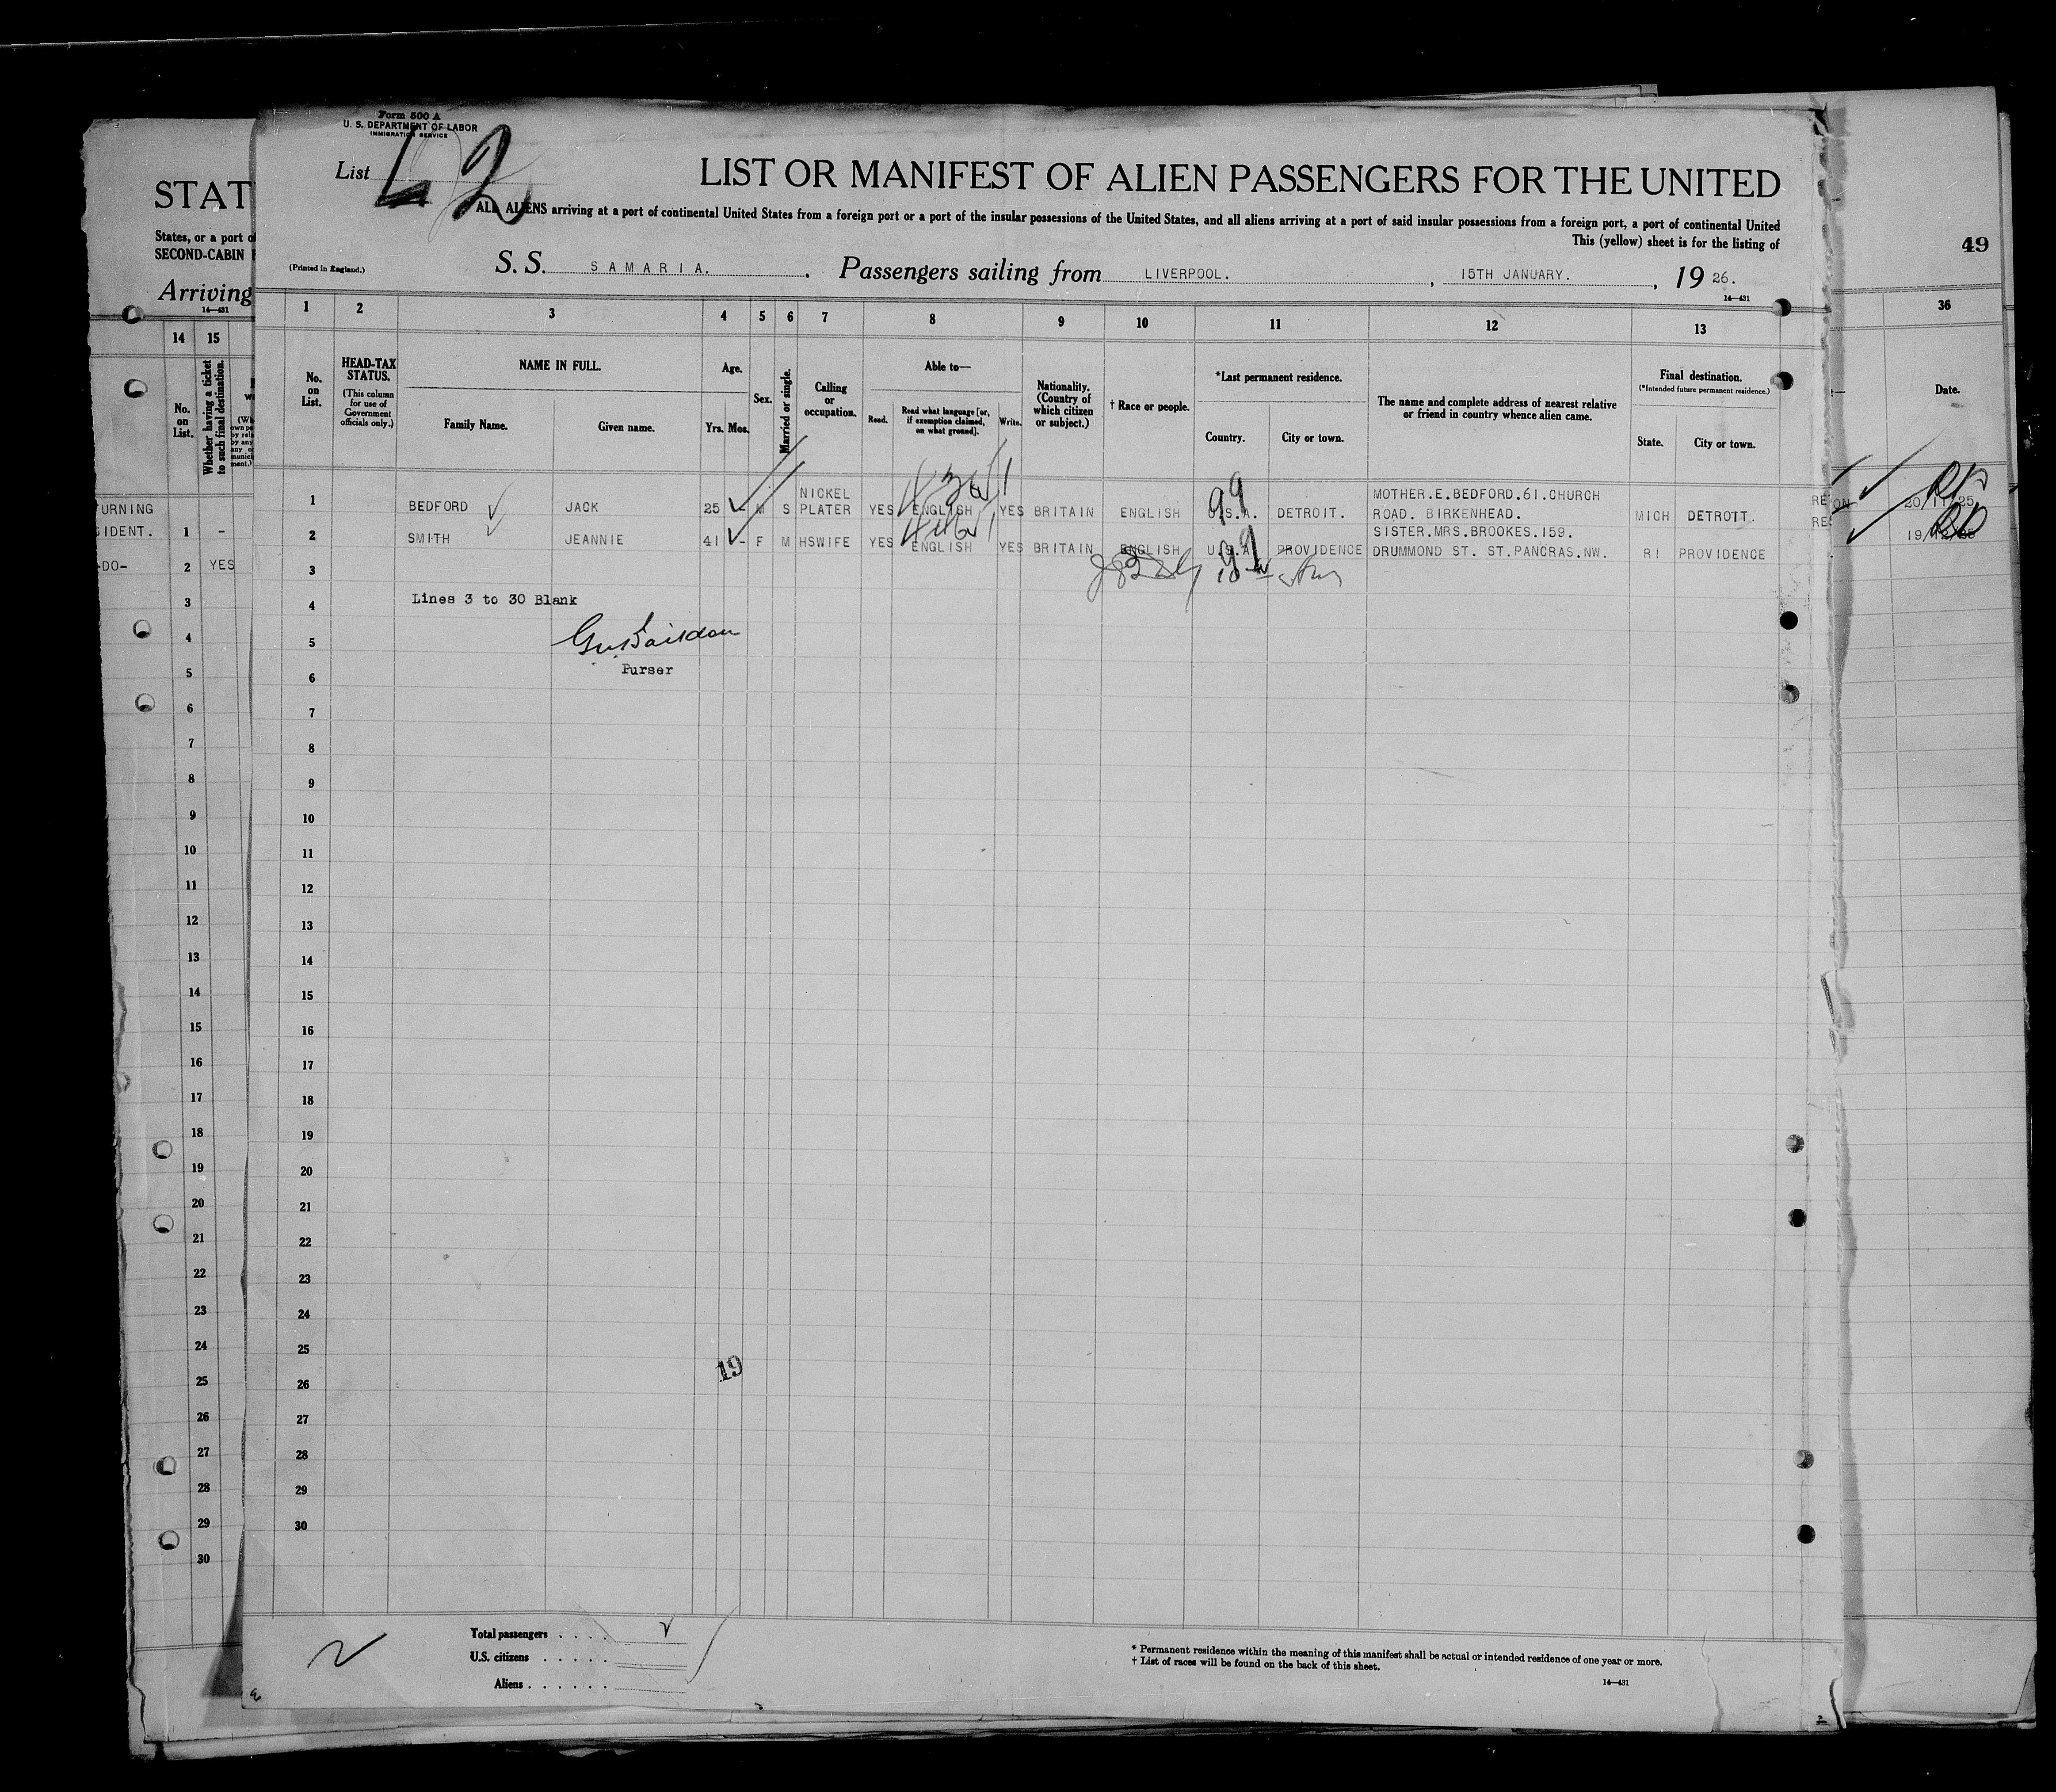 Form 500 A
U. S. DEPARTMENT OF LABOR
IMMIGRATION SERVICE
List 42
LIST OR MANIFEST OF ALIEN PASSENGERS FOR THE UNITED
ALL ALIENS arriving at a port of continental United States from a foreign port or a port of the insular possessions of the United States, and all aliens arriving at a port of said insular possessions from a foreign port, a port of continental United
This (yellow) sheet is for the listing of
(Printed in England.)
S. S. SAMARIA. Passengers sailing from LIVERPOOL. , 15TH JANUARY. , 19 26.
14—431
STAT
States, or a port o
SECOND-CABIN
Arriving
14—431
49
1 2 3 4 5 6 7 8 9 10 11 12 13
14 15
36
No. on List.
HEAD-TAX STATUS.
(This column for use of Government officials only.)
NAME IN FULL.
Family Name. Given name.
Age.
Yrs. Mos.
Sex.
Married or single.
Calling or occupation.
Able to—
Read. Read what language [or, if exemption claimed, on what ground]. Write.
Nationality. (Country of which citizen or subject.)
† Race or people.
*Last permanent residence.
Country. City or town.
The name and complete address of nearest relative or friend in country whence alien came.
Final destination.
(*Intended future permanent residence.)
State. City or town.
No. on List.
Whether having a ticket to such final destination.
Date.
1 BEDFORD JACK 25 M S NICKEL PLATER YES ENGLISH YES BRITAIN ENGLISH U.S.A. DETROIT. MOTHER.E.BEDFORD.61.CHURCH ROAD. BIRKENHEAD. MICH DETROIT.
2 SMITH JEANNIE 41 - F M HSWIFE YES ENGLISH YES BRITAIN ENGLISH U.S.A. PROVIDENCE SISTER.MRS.BROOKES.159. DRUMMOND ST. ST.PANCRAS.NW. RI PROVIDENCE
99
99
URNING
IDENT. 1 -
-DO- 2 YES
20/11/25
3
4 Lines 3 to 30 Blank
5
Purser
6
7
8
9
10
11
12
13
14
15
16
17
18
19
20
21
22
23
24
25
26
27
28
29
30
19
3
4
5
6
7
8
9
10
11
12
13
14
15
16
17
18
19
20
21
22
23
24
25
26
27
28
29
30
Total passengers . . . .
U.S. citizens . . . . .
Aliens . . . . . .
* Permanent residence within the meaning of this manifest shall be actual or intended residence of one year or more.
† List of races will be found on the back of this sheet.
14—431